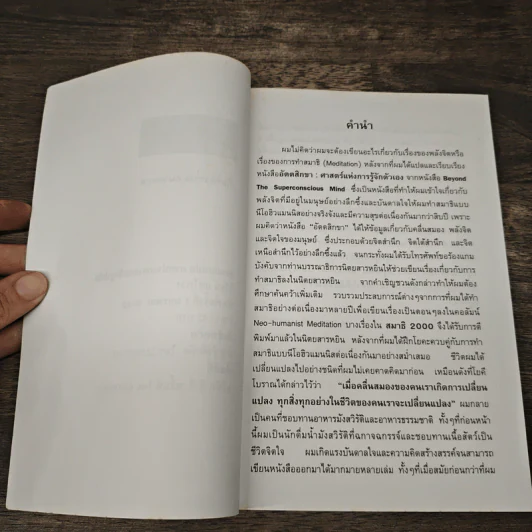 คำนำ
ผมไม่คิดว่าผมจะต้องเขียนอะไรเกี่ยวกับเรื่องของพลังจิตหรือ
เรื่องของการทำสมาธิ (Meditation) หลังจากที่ผมได้แปลและเรียบเรียง
หนังสืออัตตสิกขา : ศาสตร์แห่งการรู้จักตัวเอง จากหนังสือ Beyond
The Superconscious Mind ซึ่งเป็นหนังสือที่ทำให้ผมเข้าใจเกี่ยวกับ
พลังจิตที่มีอยู่ในมนุษย์อย่างลึกซึ้งและบันดาลใจให้ผมทำสมาธิแบบ
นีโอฮิวแมนนิสอย่างจริงจังและมีความสุขต่อเนื่องกันมากว่าสิบปี เพราะ
ผมคิดว่าหนังสือ "อัตตสิกขา" ได้ให้ข้อมูลเกี่ยวกับคลื่นสมอง พลังจิต
และจิตใจของมนุษย์ ซึ่งประกอบด้วยจิตสำนึก จิตใต้สำนึก และจิต
เหนือสำนึกไว้อย่างลึกซึ้งแล้ว จนกระทั่งผมได้รับโทรศัพท์ขอร้องแกม
บังคับจากท่านบรรณาธิการนิตยสารหยินให้ช่วยเขียนเรื่องเกี่ยวกับการ
ทำสมาธิลงในนิตยสารหยิน จากคำเชิญชวนดังกล่าวทำให้ผมต้อง
ศึกษาค้นคว้าเพิ่มเติม รวบรวมประสบการณ์ต่างๆจากการที่ผมได้ทำ
สมาธิอย่างต่อเนื่องมาหลายปีเพื่อเขียนเรื่องเป็นตอนๆลงในคอลัมน์
Neo-humanist Meditation บางเรื่องใน สมาธิ 2000 จึงได้รับการตี
พิมพ์มาแล้วในนิตยสารหยิน หลังจากที่ผมได้ฝึกโยคะควบคู่กับการทำ
สมาธิแบบนีโอฮิวแมนนิสต่อเนื่องกันมาอย่างสม่ำเสมอ ชีวิตผมได้
เปลี่ยนแปลงไปอย่างชนิดที่ผมไม่เคยคาดคิดมาก่อน เหมือนดังที่โยคี
โบราณได้กล่าวไว้ว่า "เมื่อคลื่นสมองของคนเราเกิดการเปลี่ยน
แปลง ทุกสิ่งทุกอย่างในชีวิตของคนเราจะเปลี่ยนแปลง" ผมกลาย
เป็นคนที่ชอบทานอาหารมังสวิรัติและอาหารธรรมชาติ ทั้งๆที่ก่อนหน้า
นี้ผมเป็นนักดื่มน้ำมังสวิรัติที่ฉกาจฉกรรจ์และชอบทานเนื้อสัตว์เป็น
ชีวิตจิตใจ ผมเกิดแรงบันดาลใจและความคิดสร้างสรรค์จนสามารถ
เขียนหนังสือออกมาได้มากมายหลายเล่ม ทั้งๆที่เมื่อสมัยก่อนกว่าที่ผม